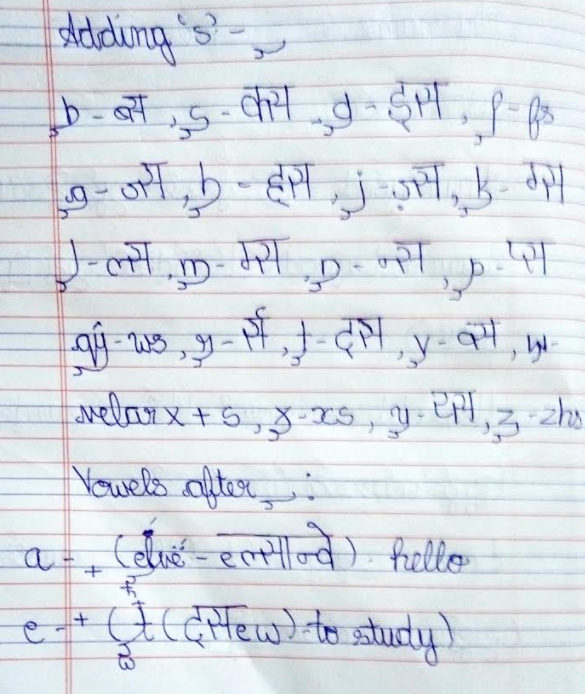 Adding 's' -
b - ब्स, s - क्स, d - ड्स, f - fs
g - ज्स, h - ह्स, j - ज़्स, k - ग्स
l - ल्स, m - म्स, n - न्स, p - प्स
qŷ - ws, r - र्स, t - द्स, v - व्स, w -
velar x + s, x - xs, y - य्स, z - zhs
Vowels after :
a - + ( - eल्सान्वे) hello
e - + (द्सew) - to study)